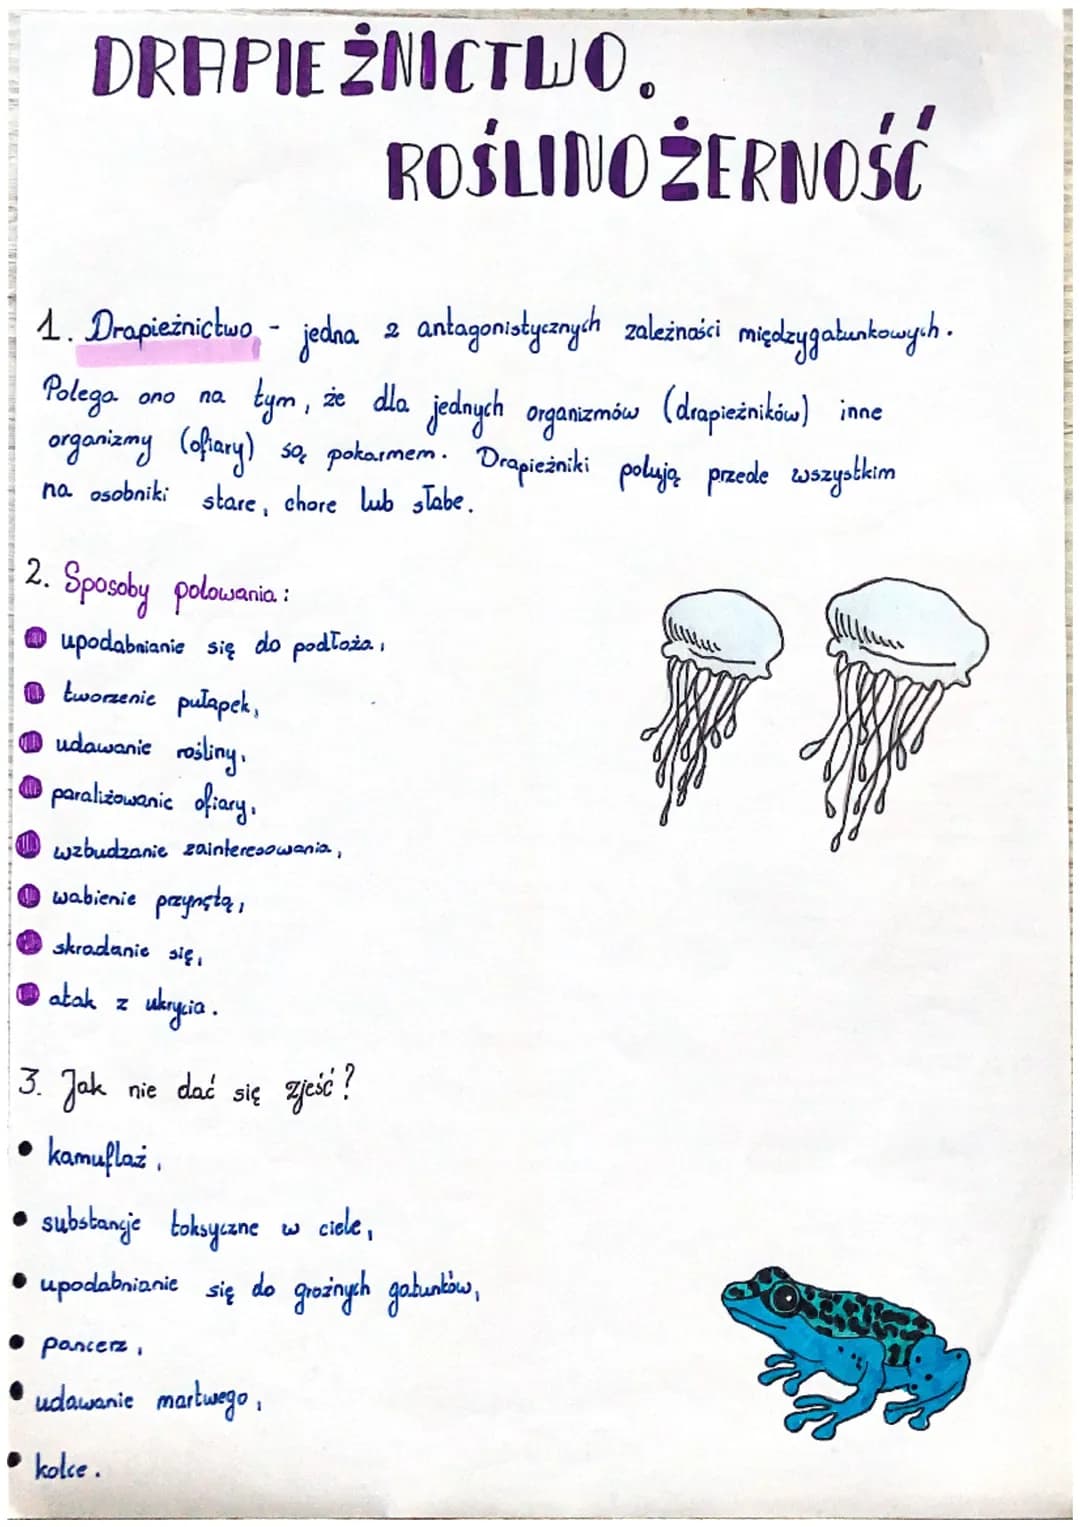 DRAPIEŻNICTWO.
ROŚLINOŻERNOŚĆ
1. Drapieżnictwo - jedna z antagonistycznych zależności międzygatunkowych.
Polega ono na tym, że dla jednych organizmów (drapieżników) inne
organizmy (ofiary) są pokarmem. Drapieżniki polują przede wszystkim
na osobniki stare, chore lub słabe.
2. Sposoby polowania:
upodabnianie się do podłoża,
tworzenie pułapek,
udawanie rośliny,
paraliżowanie ofiary,
wzbudzanie zainteresowania,
wabienie przynętą,
skradanie się,
atak z ukrycia.
3. Jak nie dać się zjeść?
• kamuflaż,
• substancje toksyczne w ciele,
• upodabnianie się do groźnych gatunków,
• pancerz,
• udawanie martwego,
• kolce.